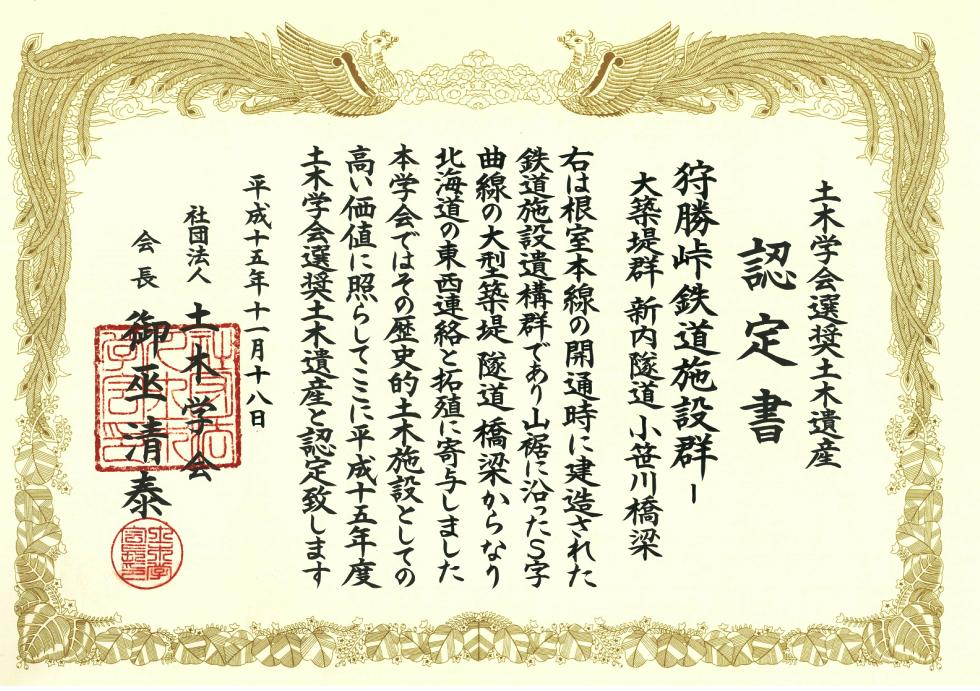 土木学会選奨土木遺産
認定書
狩勝峠鉄道施設群ー
大築堤群 新内隧道 小笹川橋梁
右は根室本線の開通時に建造された
鉄道施設遺構群であり山裾に沿ったS字
曲線の大型築堤 隧道 橋梁からなり
北海道の東西連絡と拓殖に寄与しました
本学会ではその歴史的土木施設としての
高い価値に照らしてここに平成十五年度
土木学会選奨土木遺産と認定致します
平成十五年十一月十八日
社団法人 土木学会
会長 御巫清泰